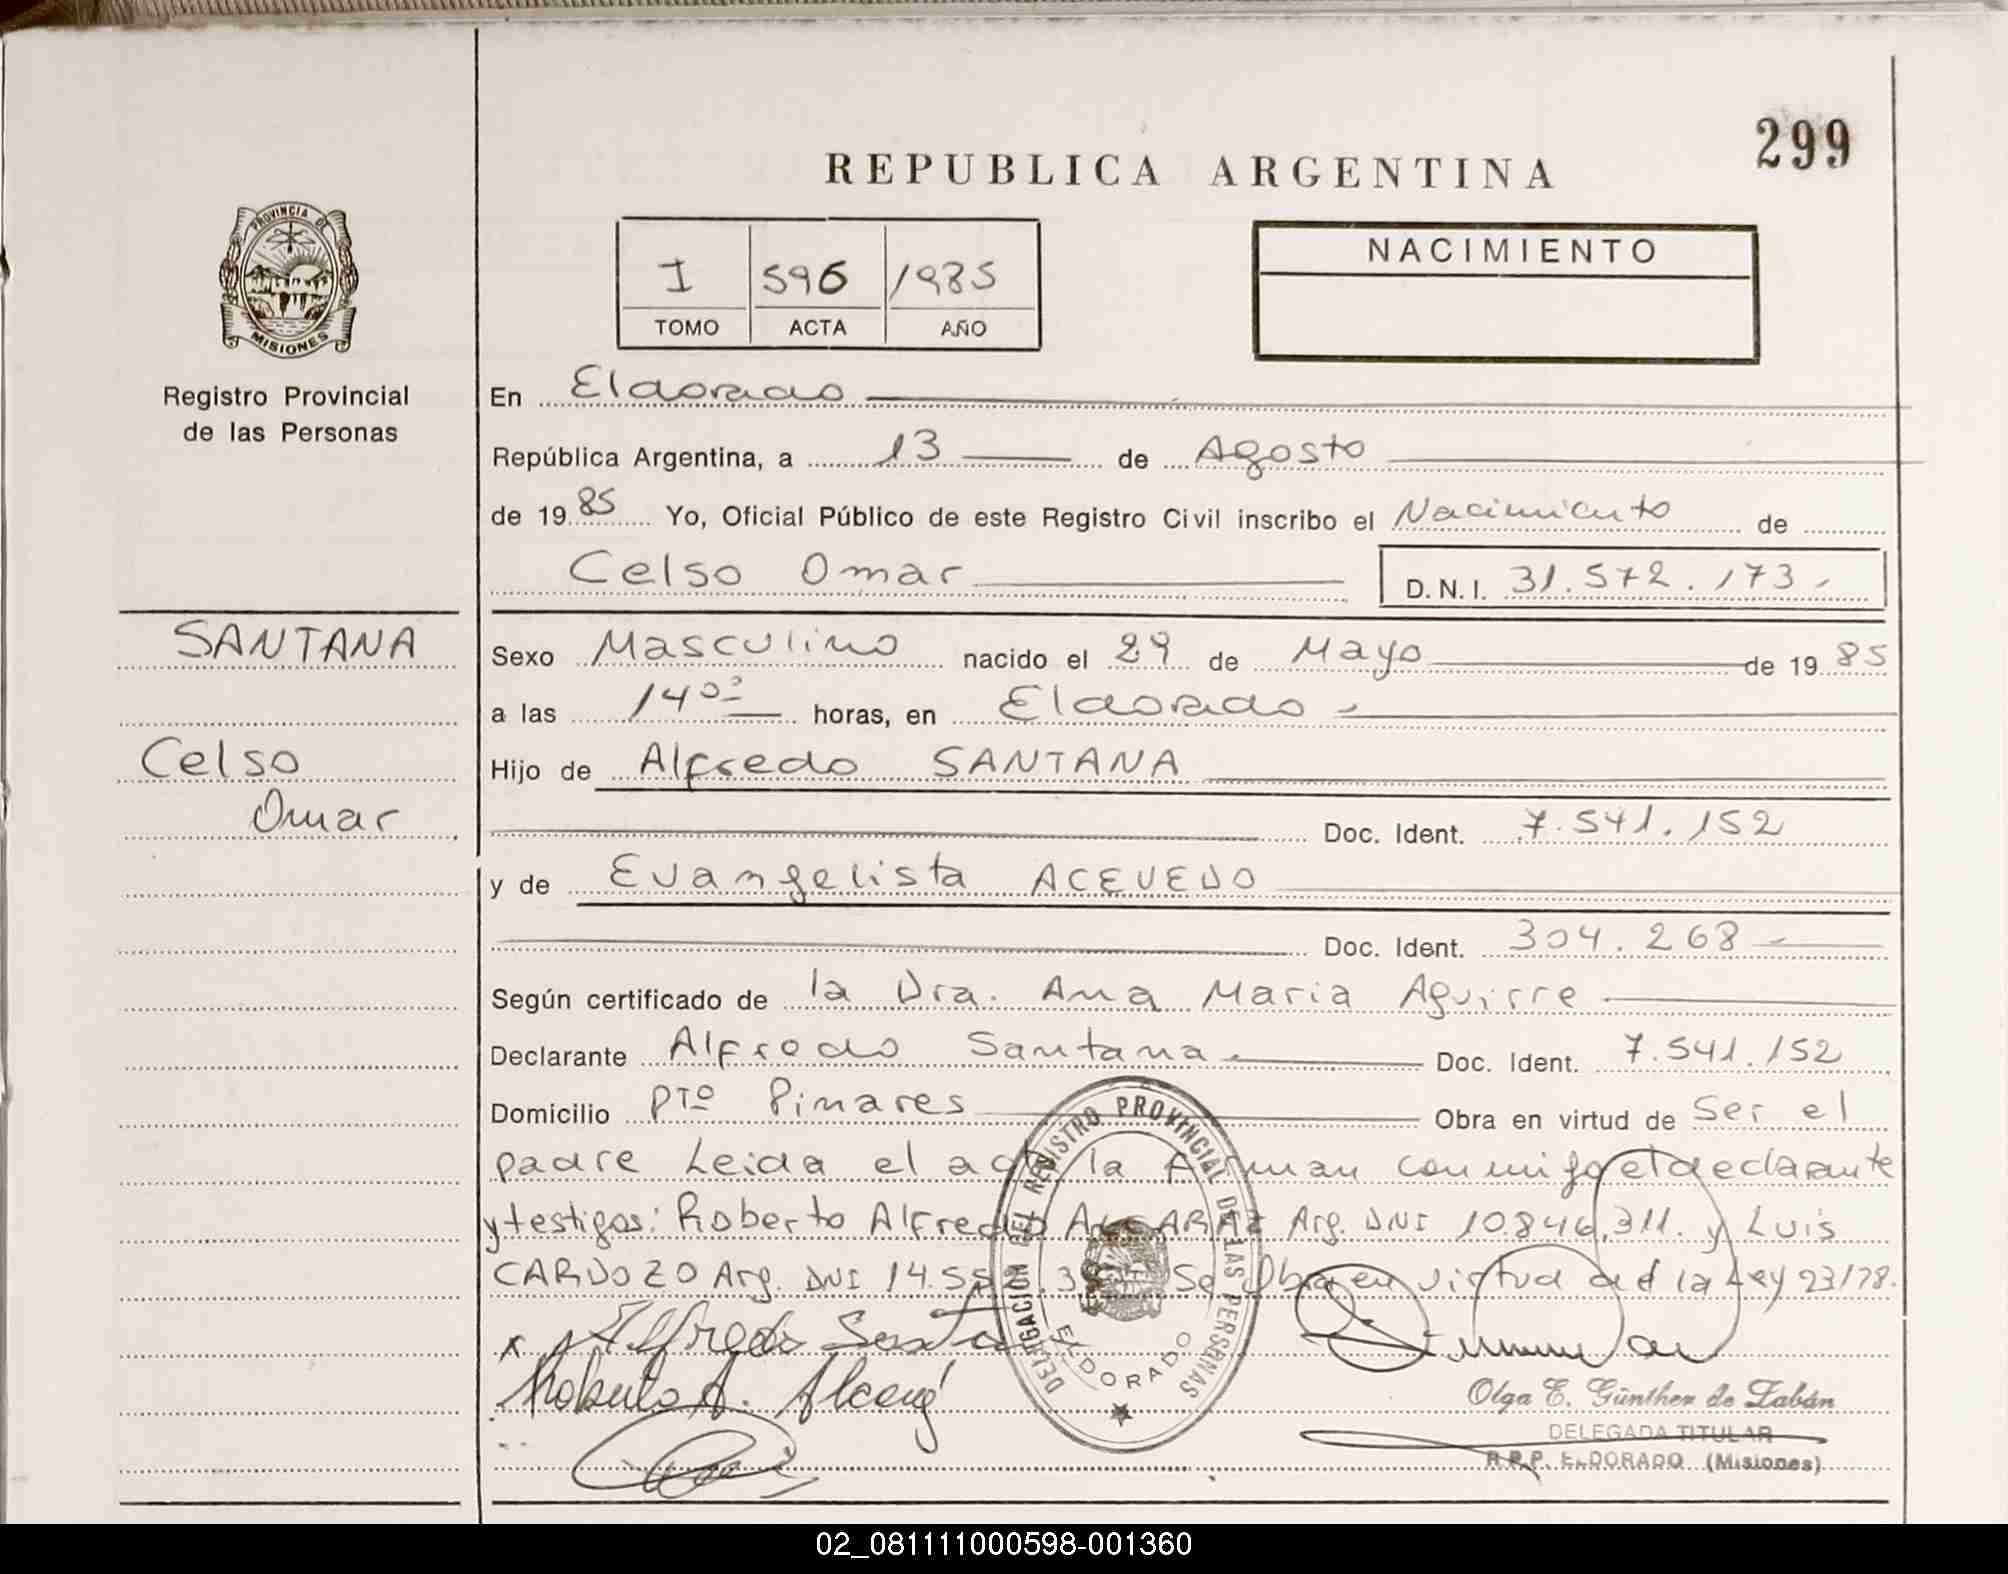 299
REPUBLICA ARGENTINA
PROVINCIA DE
MISIONES
Registro Provincial
de las Personas
I 596 1985
TOMO ACTA AÑO
NACIMIENTO
En Eldorado
República Argentina, a 13 de Agosto
de 1985 Yo, Oficial Público de este Registro Civil inscribo el Nacimiento de
Celso Omar D.N.I. 31.572.173
SANTANA
Celso
Omar
Sexo Masculino nacido el 29 de Mayo de 1985
a las 14 horas, en Eldorado
Hijo de Alfredo SANTANA
Doc. Ident. 7.541.152
y de Evangelista ACEVEDO
Doc. Ident. 304.268
Según certificado de la Dra. Ana Maria Aguirre
Declarante Alfredo Santana Doc. Ident. 7.541.152
Domicilio Pto Pinares Obra en virtud de Ser el
padre Leida el acta la firman conmigo el declarante
y testigos: Roberto Alfredo Arg. DNI 10.846.311. y Luis
CARDOZO Arg. DNI Se Obra en virtud de la Ley
Alfredo
Roberto A.
DELEGACION DEL REGISTRO PROVINCIAL DE LAS PERSONAS
ELDORADO
Olga E. Günther de Zabán
DELEGADA TITULAR
R.P.P. ELDORADO (Misiones)
02_081111000598-001360